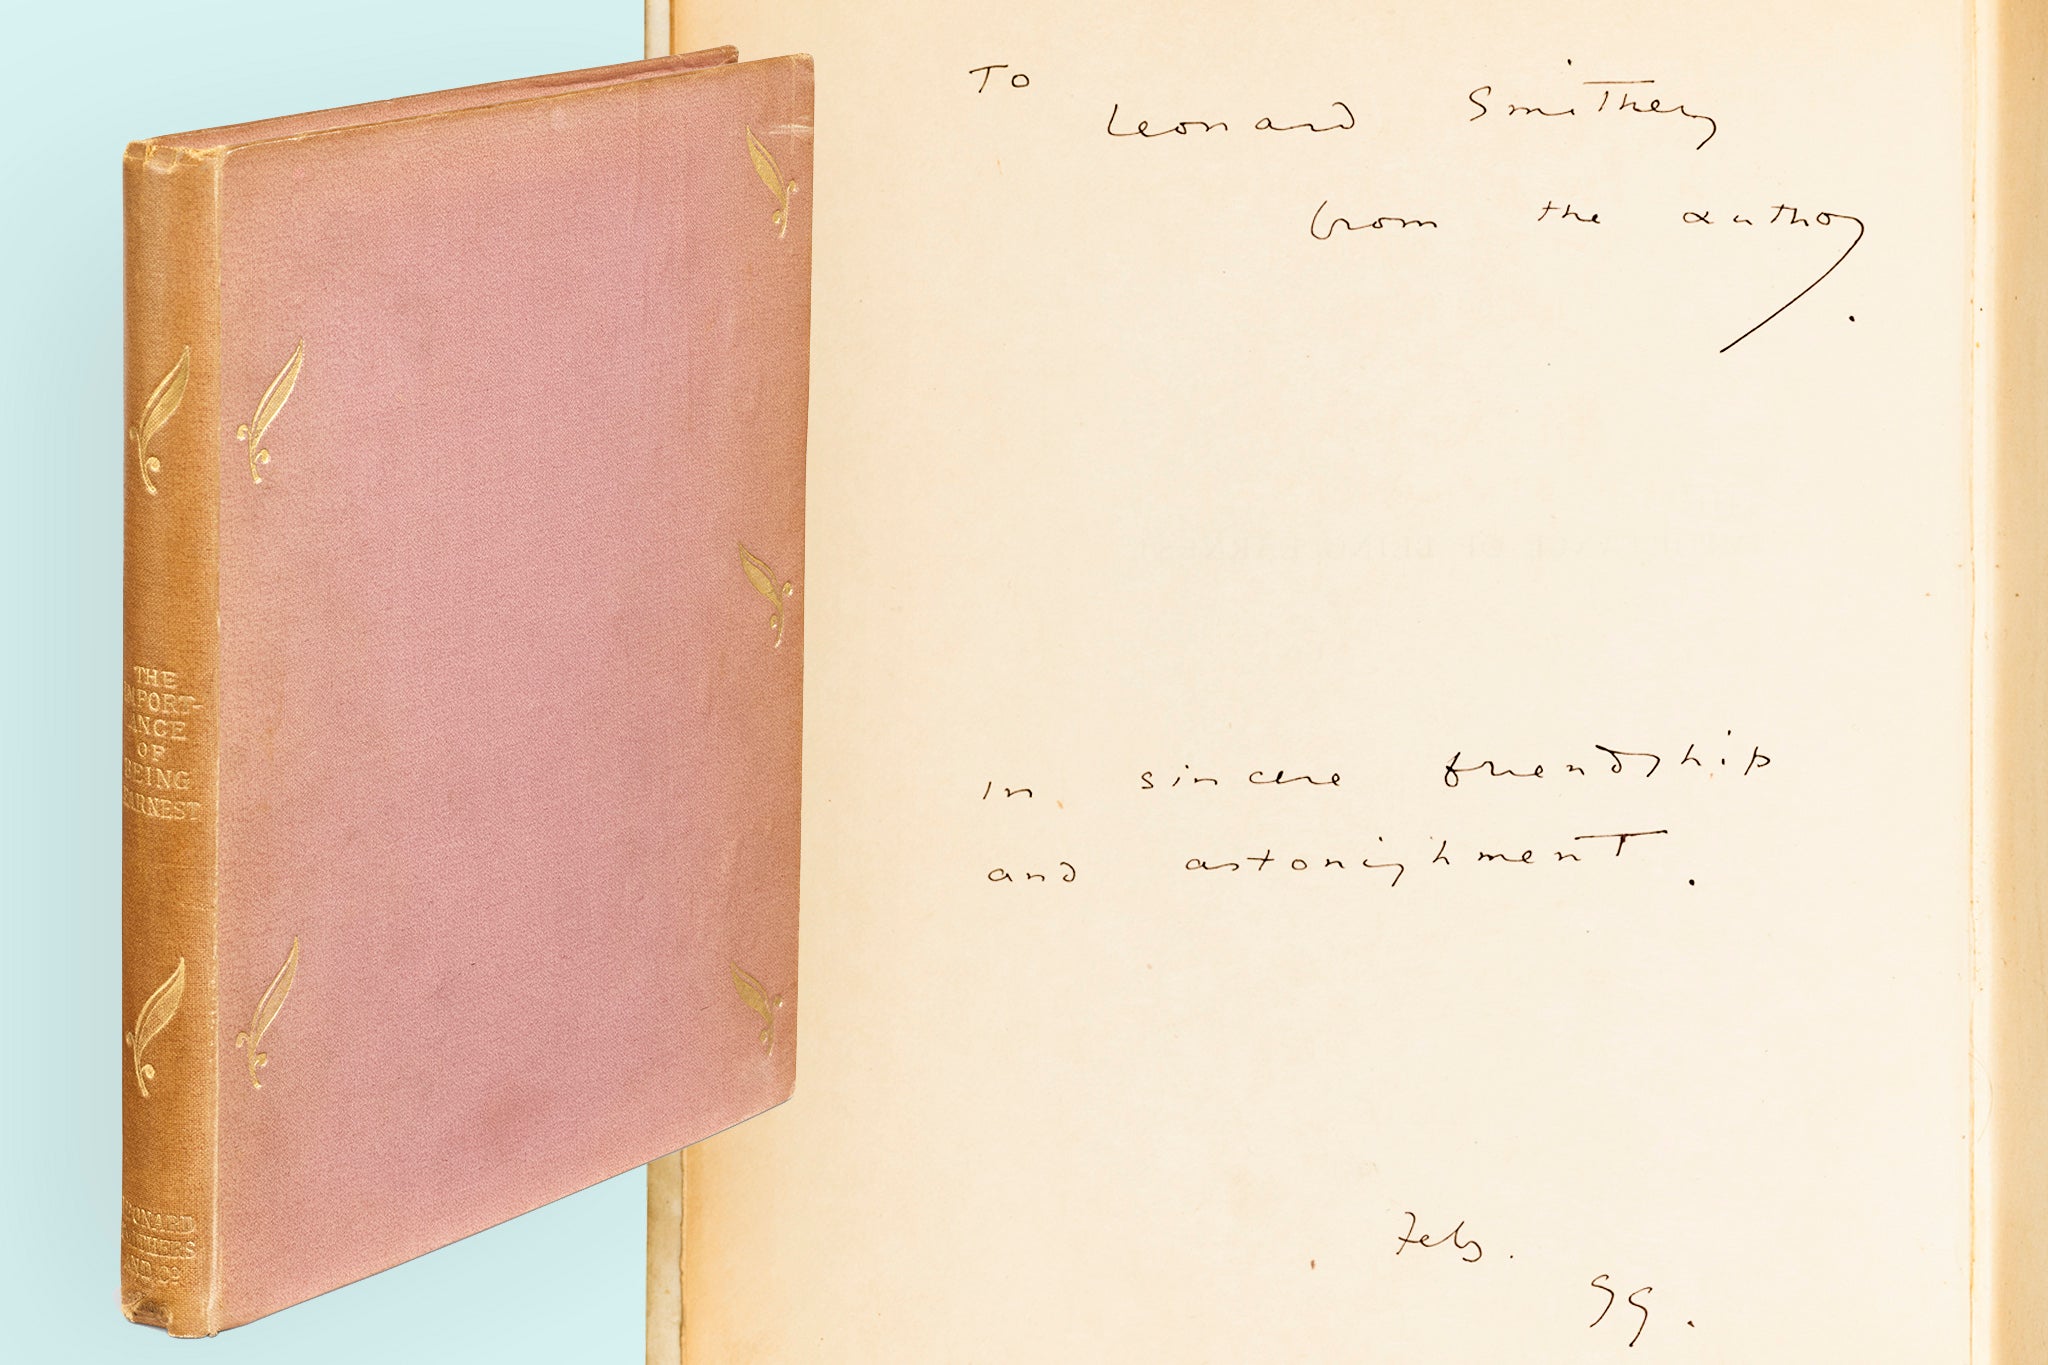 THE
IMPORT-
ANCE
OF
BEING
EARNEST
LEONARD
SMITHERS
AND Co
To
Leonard Smithers
from the author.
In sincere friendship
and astonishment.
Feb.
99.